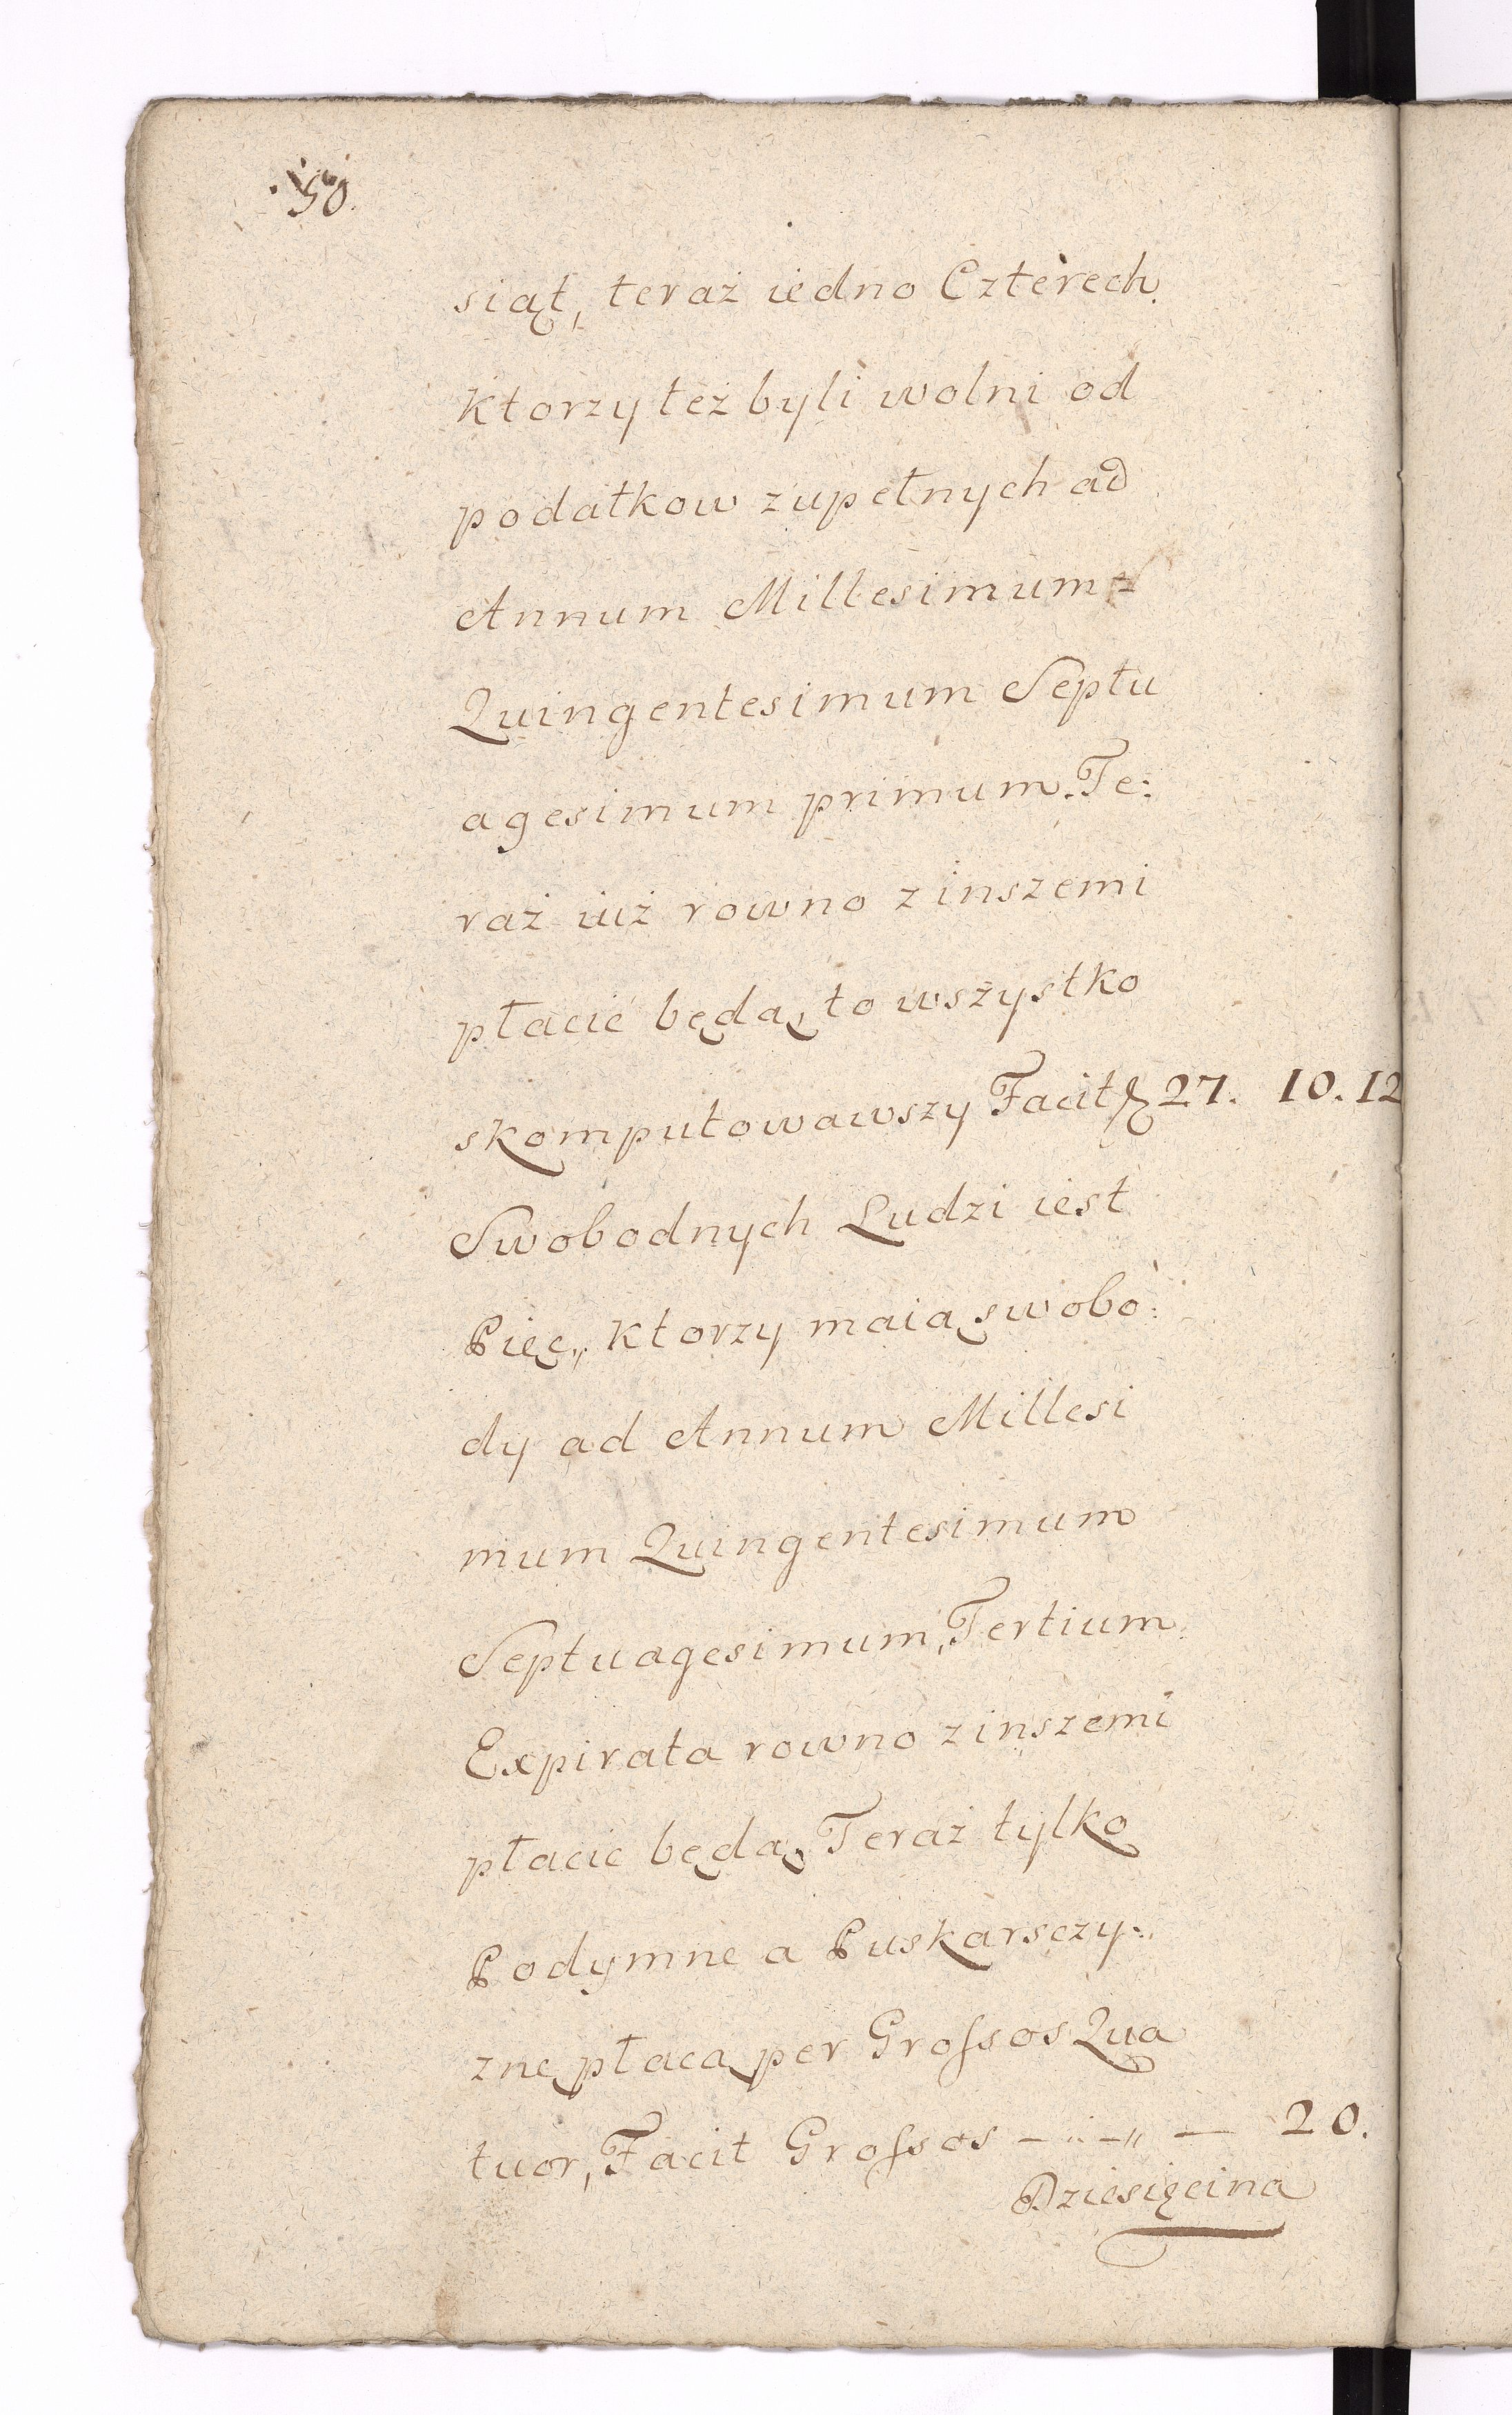 50.
siąt, teraz iedno Czterech.
Ktorzy też byli wolni od
podatkow zupełnych ad
Annum Millesimum
Quingentesimum Septu
agesimum primum. Te:
raż iuż rowno z inszemi
płacić będą, to wszystko
skomputowawszy Facit f 27. 10. 12
Swobodnych Ludzi iest
Pięc,, Ktorzy maią swobo:
dy ad Annum Millesi
mum Quingentesimum
Septuagesimum, Tertium.
Expirata rowno z inszemi
płacic będą, Teraż tylko
Podymne a Puskarsczy:,
znę płacą per Grossos Qua
tuor, Facit Grossos — „ — „ — 20.
Dziesięcina